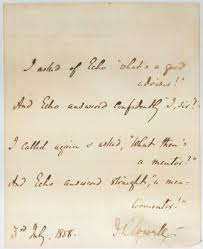 I asked of Echo "what's a good
adviser?"
And Echo answered confidently "I, sir!"
I called again & asked, "What then's
a mentor?"
And Echo answered straight, "a men-
tormentor!"
3d July, 1858. J. R. Lowell.